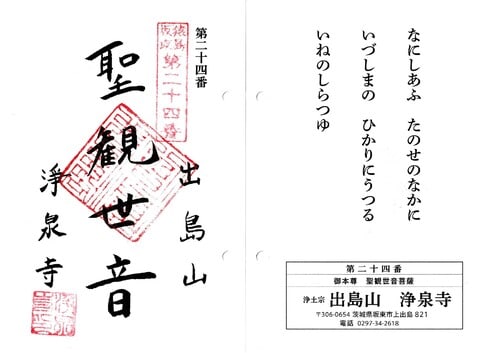 第二十四番
猿島
坂東
第二十四番
出島山
聖観世音
淨泉寺
なにしあふ　たのせのなかに
いづしまの　ひかりにうつる
いねのしらつゆ
第二十四番
御本尊　聖観世音菩薩
浄土宗　出島山　浄泉寺
〒306-0654 茨城県坂東市上出島 821
電話　0297-34-2618